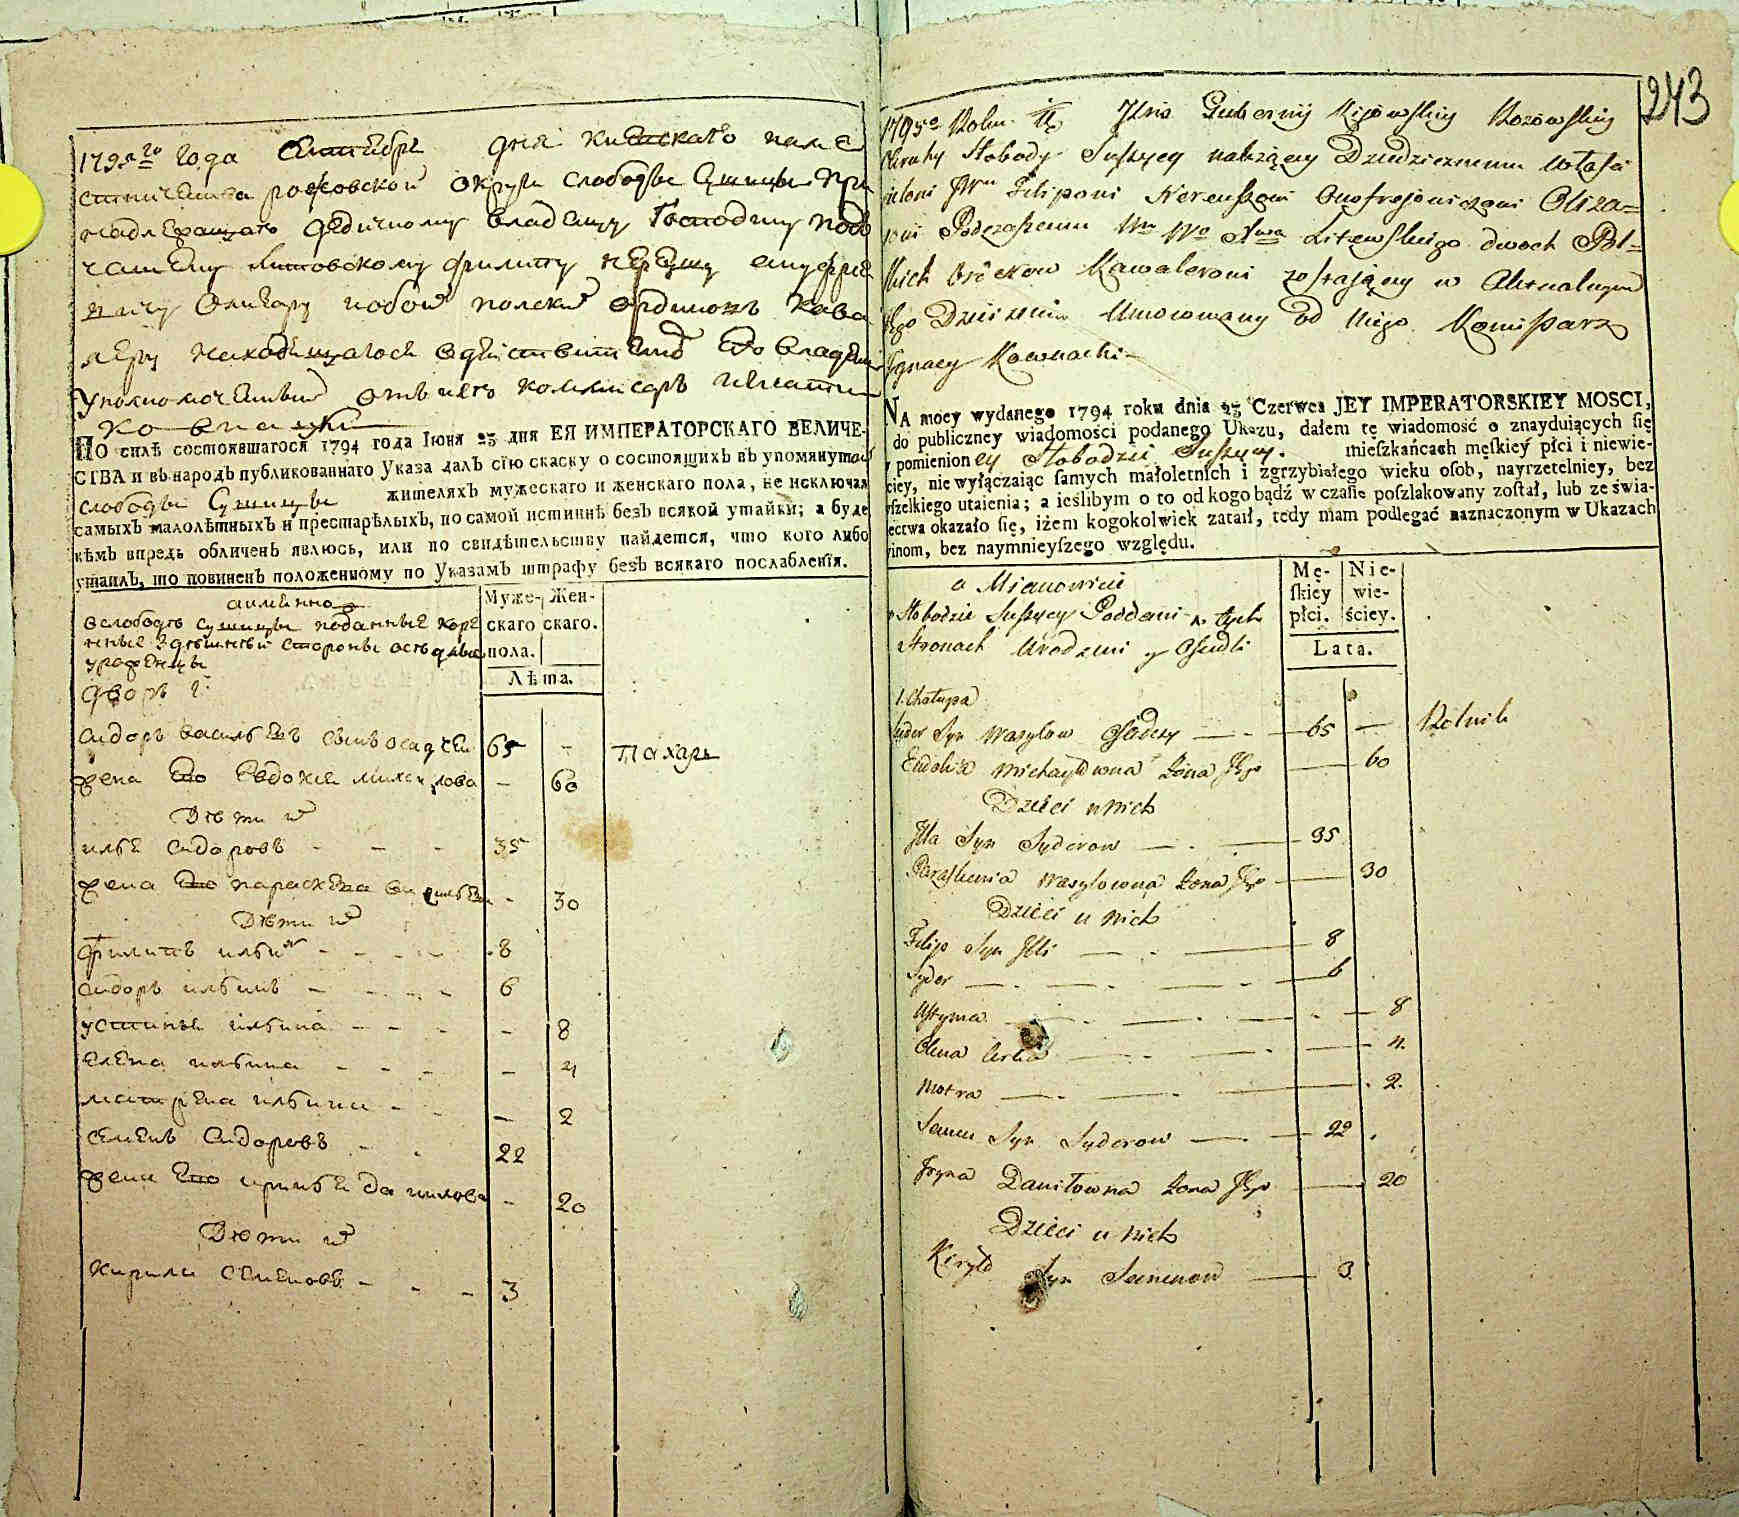 243
1795го года Сентебра дня Киевскаго наме
стничества рожовской округи слободы Сушицы при
надлежащаго дедичному владелцу Господину подъ
чашему Литовскому Филипу
Оликару и обоих полских ординовъ кава
леру находещагося в действителном его владении
уполномоченный от него коммисаръ Игнатий
Ковнацкий
По силѣ состоявшагося 1794 года Іюня 23 дня ЕЯ ИМПЕРАТОРСКАГО ВЕЛИЧЕ-
СТВА и въ народъ публикованнаго Указа далъ сїю скаску о состоящихъ въ упомянутой
слободы Сушицы жителяхъ мужескаго и женскаго пола, не исключая
самыхъ малолѣтныхъ и престарѣлыхъ, по самой истиннѣ безъ всякой утайки; а буде
кѣмъ впредь обличенъ явлюсь, или по свидѣтельству найдется, что кого либо
утаилъ, то повиненъ положенному по Указамъ штрафу безъ всякаго послабленїя.
аимянно
в слободѣ Сушицы поданные коре
нные здешней стороны оседлые
уроженцы
Муже-скаго пола. Жен-скаго.
Лѣта.
дворъ 1й
Сидоръ василевъ сынъ осадчей 65 - Пахарь
жена его Евдокея михаилова - 60
Дети их
илья Сидоровъ - - - 35
жена его параскева василева - 30
Дети их
Филипъ ильин - - - - 8
Сидоръ ильинъ - - - - 6
устинья ильина - - - - 8
Елена ильина - - - - 4
матрена ильина - - - 2
Семенъ Сидоровъ - - 22
жена его ирина данилова - 20
Дети их
Кирила Семеновъ - - - 3
1795o Roku Dnia Gubernij Kijowskiey Rozowskiey
Okruhy Słobody Suszycy należącey Dziedzicznemu Właści
cielowi JWu Filiponi Onofrejoniczoni Oliza=
rowi Podczaszemu Litewskiego dwoch Pol=
skich Orderow Kawalerowi zostającey w Aktualnym
Jego Dzierżeniu Umocowany od Niego Komisarz
Ignacy Kownacki
NA mocy wydanego 1794 roku dnia 23 Czerwca JEY IMPERATORSKIEY MOSCI,
do publiczney wiadomości podanego Ukazu, dałem tę wiadomość o znayduiących się
w pomienioney Słobodzie Suszycy. mieſzkańcach męſkiey płci i niewie-
ściey, nie wyłączaiąc ſamych małoletnich i zgrzybiałego wieku oſob, nayrzetelniey, bez
wſzelkiego utaienia; a ieślibym o to od kogo bądź w czaſie poſzlakowany zoſtał, lub ze świa-
dectwa okazało ſię, iżem kogokolwiek zataił, tedy mam podlegać naznaczonym w Ukazach
winom, bez naymnieyſzego względu.
a Mianowicie
w Słobodzie Suszycy Poddani w tych
Stronach Urodzeni y Osiedli
Mę-ſkiey płci. Nie-wie-ściey.
Lata.
1. Chałupa
Syder Syn Wasylow Osadczy — 65 — Rolnik
Eudokia Michayłowna Żona Jego — 60
Dzieci u nich
Illa Syn Syderow — 35
Paraskewia Wasylowna Żona Jego — 30
Dzieci u nich
Filip Syn Illi — 8
Syder — 6
Ustyma — 8
Olena — 4
Motra — 2
Semen Syn Syderow — 22
Iryna Daniłowna Żona Jego — 20
Dzieci u nich
Kiryło Syn Semenow — 3